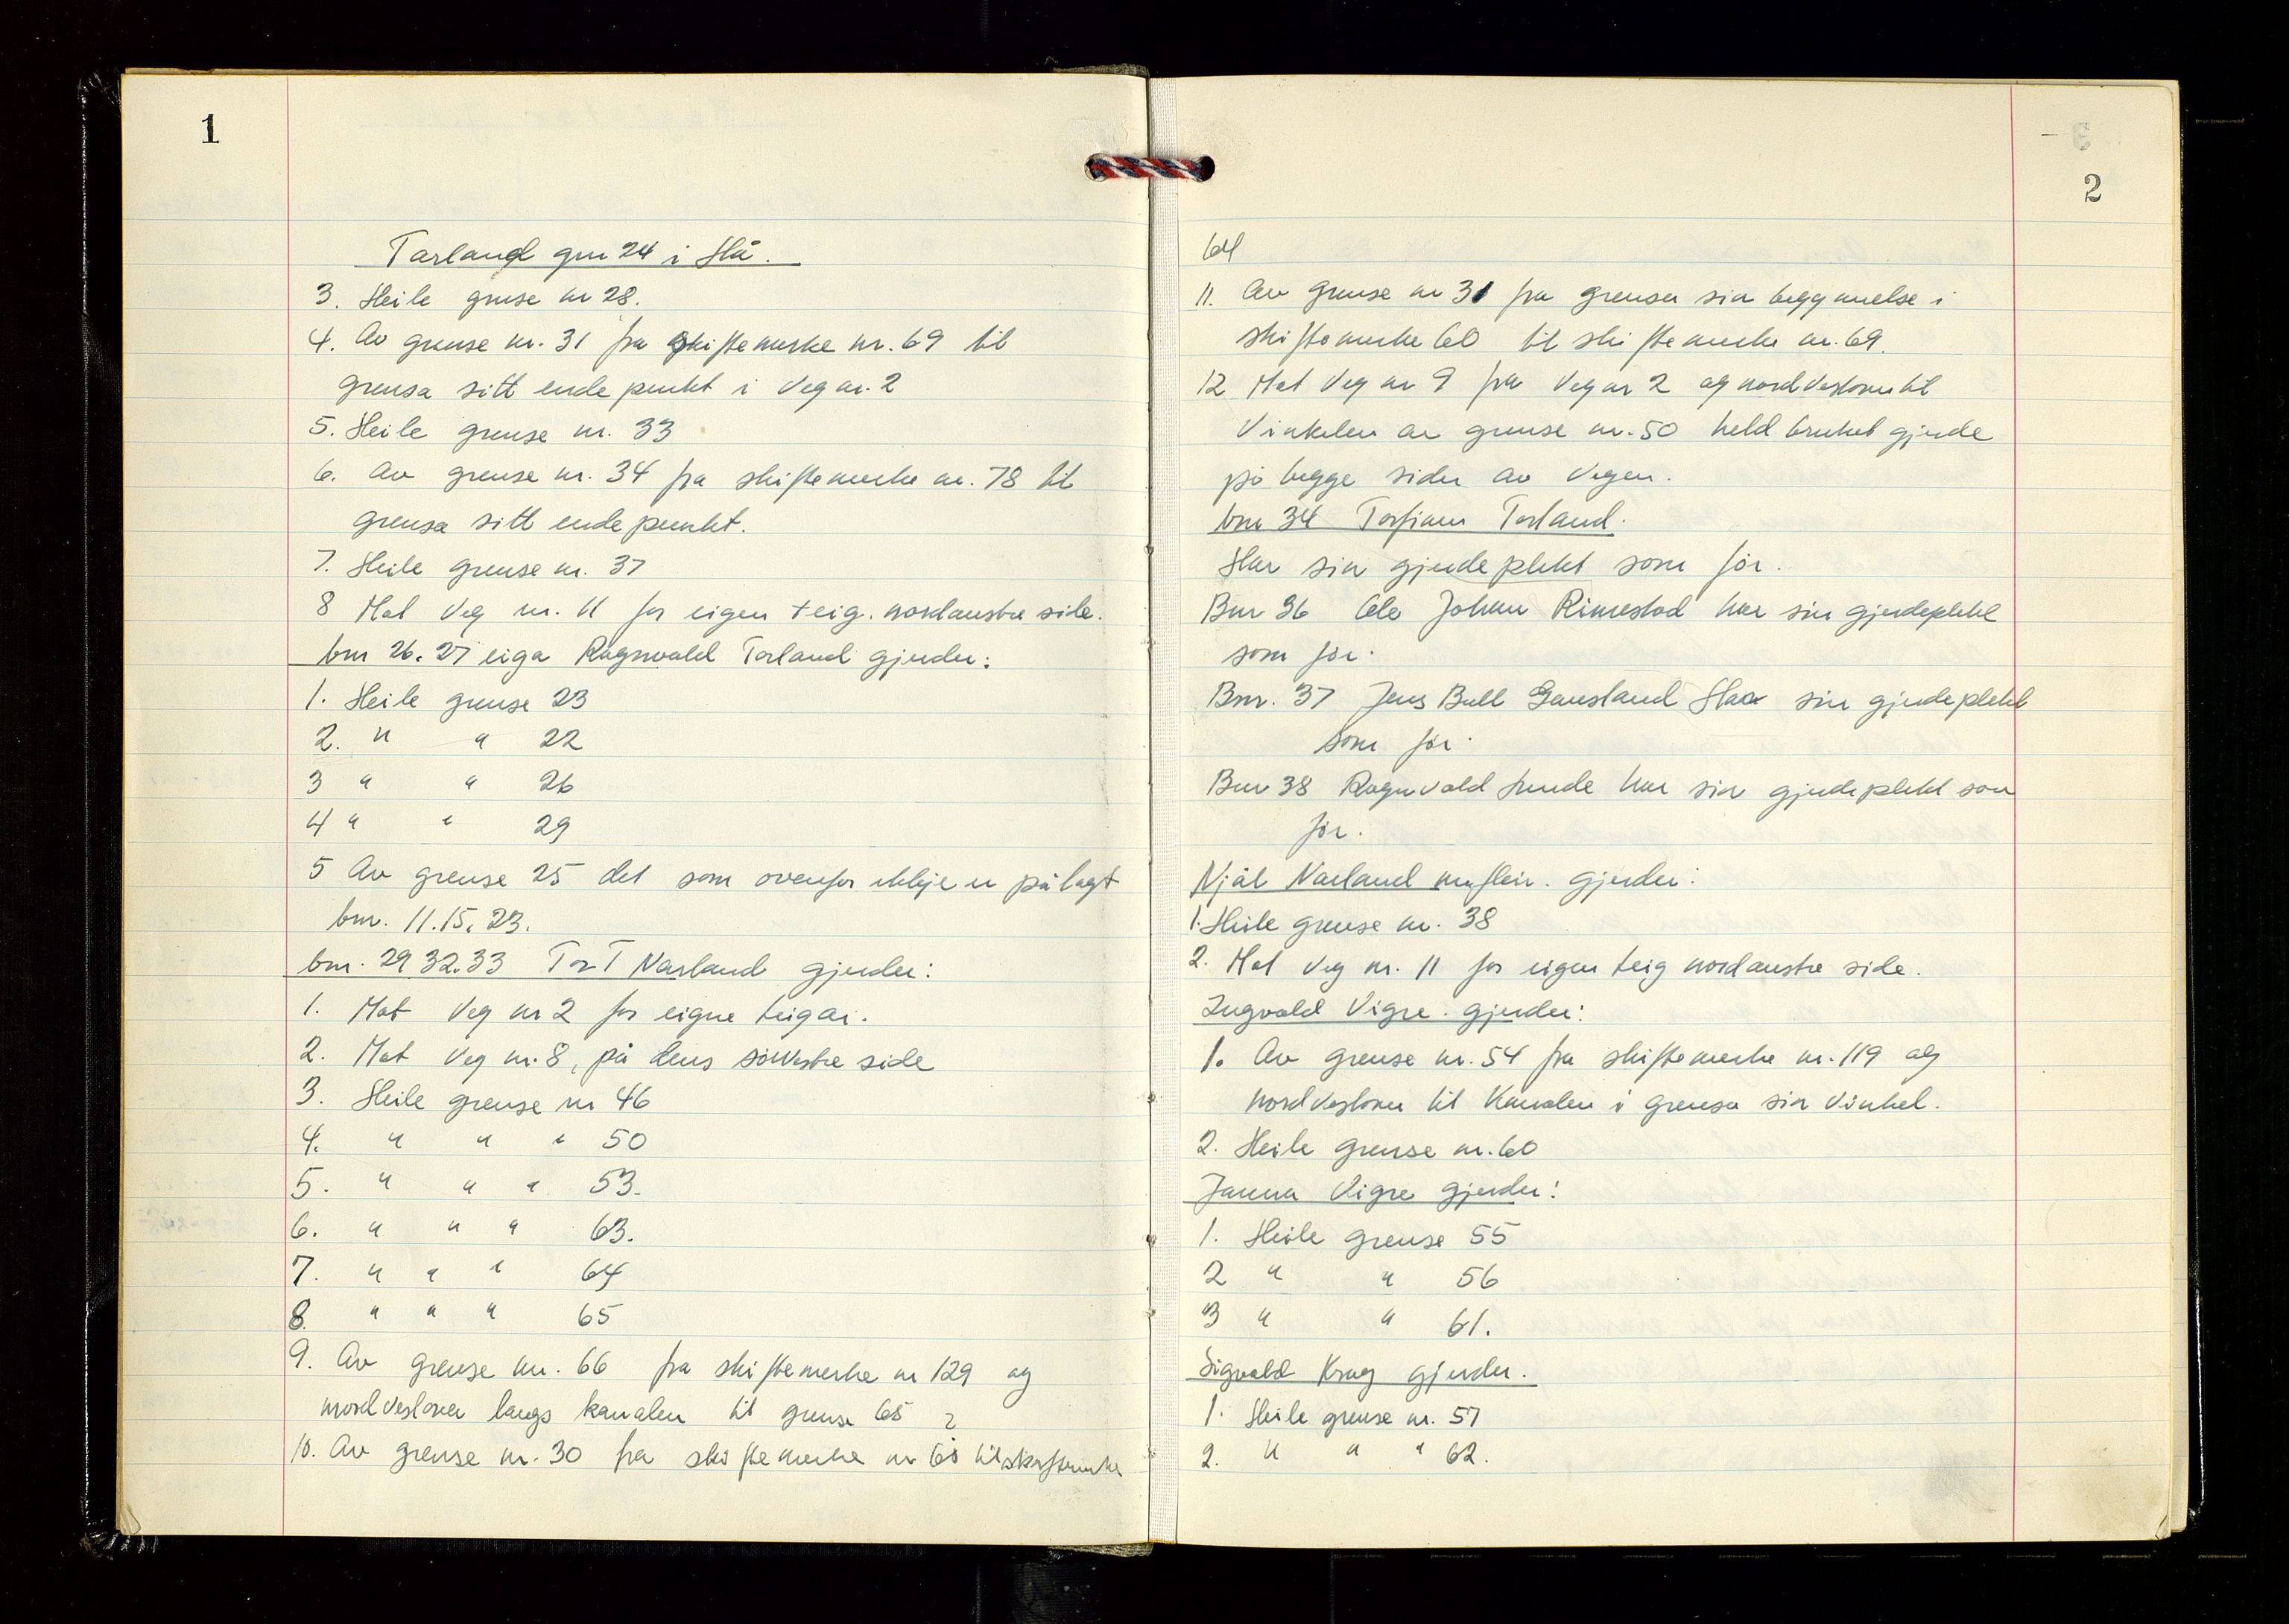 1
Tarland gnr 24 i Hå.
3. Heile grense nr 28.
4. Av grense nr. 31 fra skiftemerke nr. 69 til
grensa sitt endepunkt i Veg nr. 2
5. Heile grense nr. 33
6. Av grense nr. 34 fra skiftemerke nr. 78 til
grensa sitt endepunkt.
7. Heile grense nr. 37
8 Mot Veg nr. 11 for eigen teig. nordaustre side.
bnr 26. 27 eiga Ragnvald Torland gjerder:
1. Heile grense 23
2. " " 22
3 " " 26
4 " " 29
5 Av grense 25 det som ovenfor ikkje er pålagt
bnr. 11. 15, 23.
bnr. 29 32. 33 Tor T Narland gjerder:
1. Mot Veg nr 2 for eigne teigar.
2. Mot Veg nr. 8, på dens sørvestre side
3. Heile grense nr 46
4. " " " 50
5. " " " 53.
6. " " " 63.
7. " " " 64
8. " " " 65
9. Av grense nr. 66 fra skiftemerke nr 129 og
nordvestover langs kanalen til grense 65 ?
10. Av grense nr. 30 fra skiftemerke nr 60 til skiftemerke
2
64
11. Av grense nr 31 fra grensa sin begynnelse i
skiftemerke 60 til skiftemerke nr. 69.
12 Mot Veg nr 9 fra Veg nr 2 og nordvestover til
Vinkelen av grense nr. 50 held bruket gjerde
på begge sider av Vegen.
bnr 34 Torfinn Torland.
Har sin gjerdeplikt som før.
Bnr 36 Ole Johan Rimestad har sin gjerdeplikt
som før.
Bnr. 37 Jens Bull Gausland Har sin gjerdeplikt
som før.
Bnr 38 Ragnvald Lende har sin gjerdeplikt som
før.
Njål Narland m/fleir. gjerder:
1. Heile grense nr. 38
2. Mot Veg nr. 11 for eigen teig nordaustre side.
Ingvald Vigre. gjerder:
1. Av grense nr. 54 fra skiftemerke nr. 119 og
nordvestover til Kanalen i grensa sin vinkel.
2. Heile grense nr. 60
Janna Vigre gjerder:
1. Heile grense 55
2 " " 56
3 " " 61.
Sigvald Krug gjerder.
1. Heile grense nr. 57
2. " " " 62.